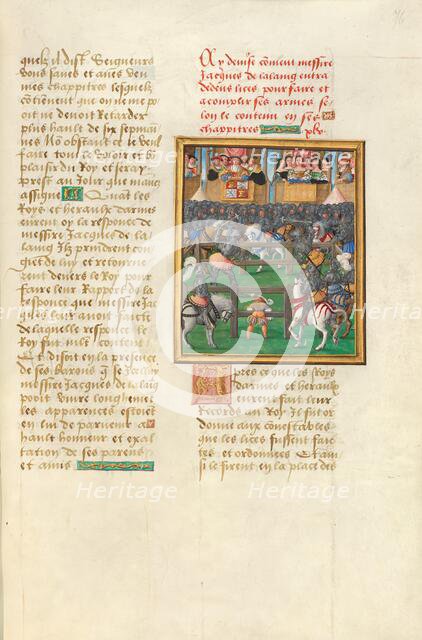 quelz il dist Seigneurs
vous saues et aues veu
mes chappitres lesquelz
côtiênent que on ne me po
oit ne deuoit Retarder
plus hault de six sepmai
nes Nô obstant ce Je veul
faire tout le voloir et le
plaisir du Roy et seray
prest au Jour que mauez
assigne Quât les
Roys et heraultz darmes
eurent oy la responce de
messire Jacques de la
laîg Ilz prindrent con
giet de luy et retourne
rent deuers le Roy pour
faire leur Rapport de la
responce que messire Jac
ques leur auoit faicte
de laquelle responce le
Roy fut mlt content
Et disoit en la presence
de ses barons que se
messire Jacques de lalaîg
pooit viure longhement
les apparences estoiêt
en luy de paruenir a
hault honneur et exal
tation de ses parens
et amis
76
Cy deuise cômêt messire
Jacques de lalaing entra
dedens lices pour faire et
acomplir ses armes se
lon le contenu en ses
chappitres
Apres ce que les Roys
darmes et heraulx
eurent fait leur
Records au Roy Il fu or
donne aux connestables
que les lices fussent fai
tes et ordonnees Et ain
si le firent en la place des
Heritage
Heritage
Heritage
Heritage